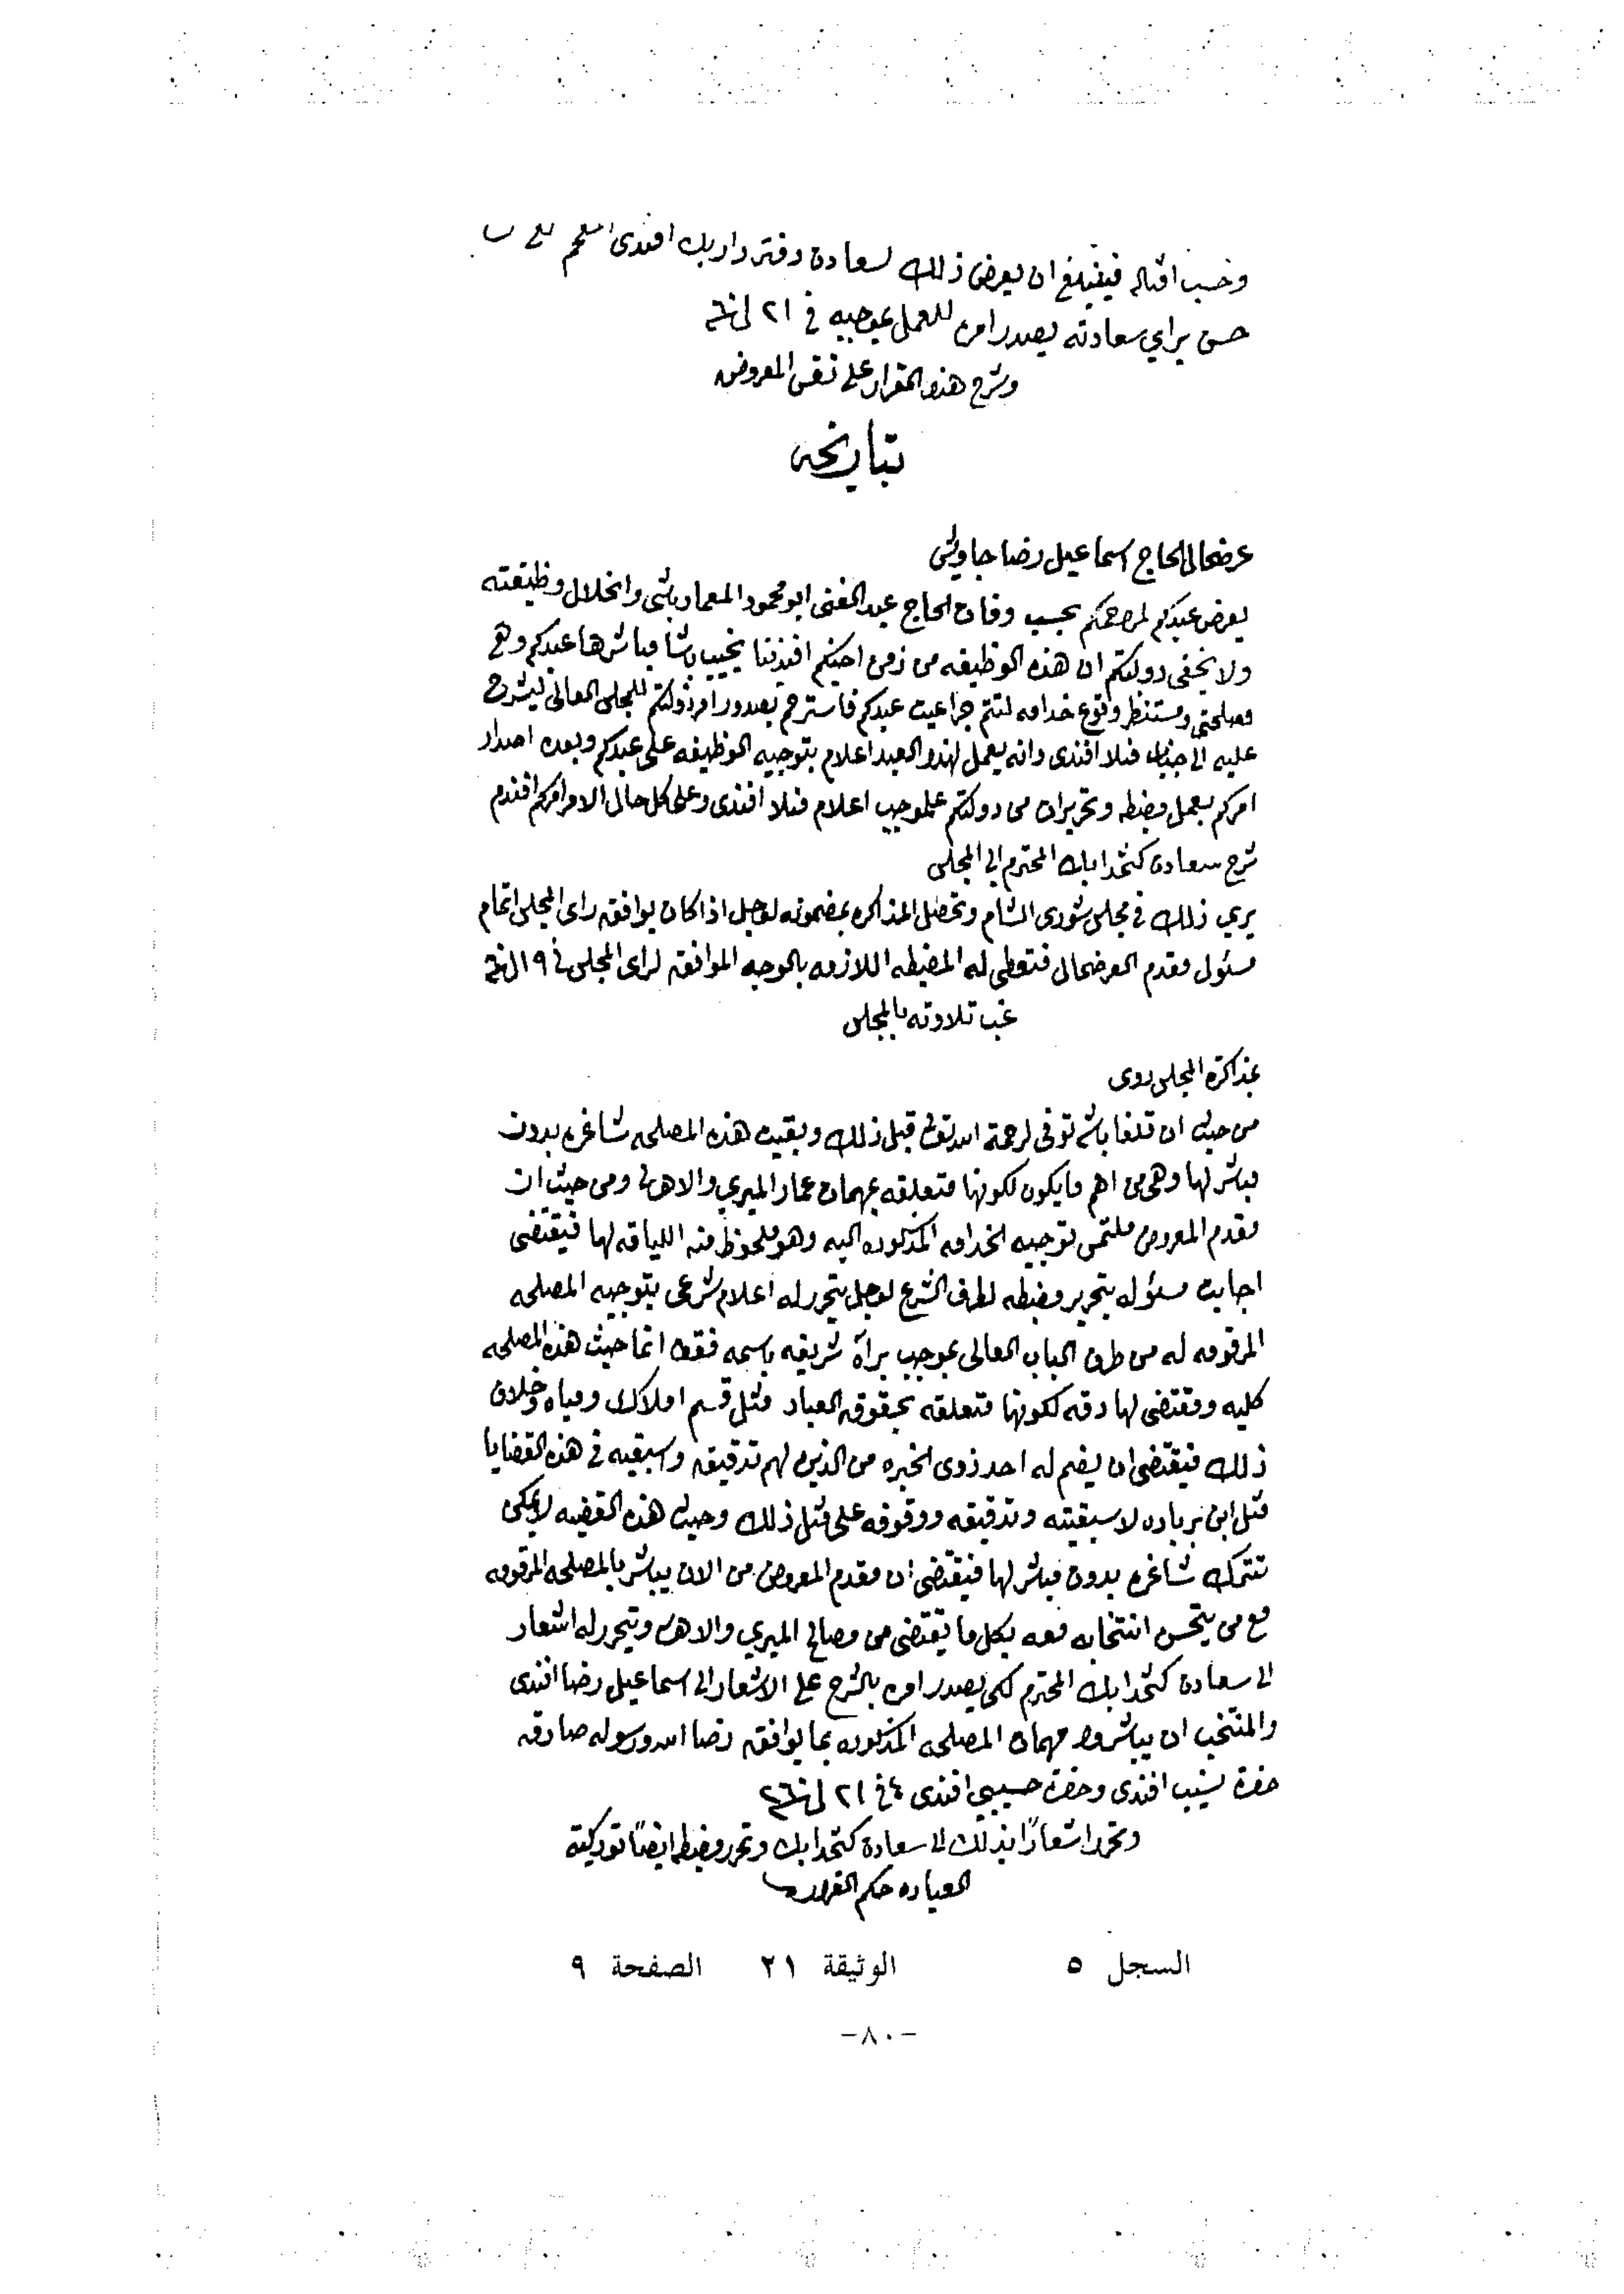 وحسب اقتاله فينبلغ ان يعرض ذلك لسعادة دفتر دار بك افندى
حسن براي سعادته يصدر امره للعمل بموجبه في ٢١
وشرح هذه القرار على نفس المعروض
بتاريخه
عرضحال الحاج اسماعيل رضا جاويش
يعرض عبدكم لمراحمكم بحسب وفات الحاج عبد الغنى ابو محمود المعمار باشى وانحلال وظيفته
ولا يخفى دولتكم ان هذه الوظيفه من زمن اخيكم افندينا نجيب باشا مباشرها عبدكم وهي
مصلحتى ومستنظر وقوع خدامه لتتم عبدكم فاسترحم بصدور امر دولتكم للمجلس العالى ليشرح
عليه الى جناب منلا افندى وانه يعمل لهذه العبد اعلام بتوجيه الوظيفه على عبدكم وبعده اصدار
امركم بعمل مضبطه وتحريرات من دولتكم عملوجب اعلام منلا افندى وعلى كل حال الامر امركم افندم
شرح سعادة كتخدا بك المحترم الى المجلس
يري ذلك في مجلس شورى الشام وتحصل المذاكره بمضمونه لوجل اذا كان يوافق راى المجلس اتمام
مسئول مقدم العرضحال فتعطى له المضبطه اللازمه بالوجه الموافق لراى المجلس في ١٩
غب تلاوته بالمجلس
بمذاكرة المجلس روى
من حيث ان قلفا باشى توفى لرحمة الله تعالى قبل ذلك وبقيت هذه المصلحه شاغره بدون
مباشر لها وهى من اهم ما يكون لكونها متعلقه بمهمات عمار الميري والاهالى ومن حيث ان
مقدم المعروض ملتمس توجيه الخدامه المذكوره اليه وهو ملحوظ منه اللياقه لها فيقتضى
اجابت مسئوله بتحرير مضبطه لطرف الشرع لوجل يتحرر له اعلام شرعى بتوجيه المصلحه
المرقومه له من طرف الباب العالى بموجب براة شريفه باسمه فقط انما حيث هذه المصلحه
كليه ومقتضى لها دقه لكونها متعلقه بحقوق العباد مثل قسم املاك ومياه وخلاف
ذلك فيقتضى ان يضم له احد ذوى الخبره من الذين لهم تدقيق واسبقيه في هذه القضايا
مثل ابن بربارة لاسبقيته وتدقيقه ووقوفه على مثل ذلك وحيث هذه القضيه لا يمكن
تترك شاغره بدون مباشر لها فيقتضى ان مقدم المعروض من الان يباشر بالمصلحه المرقومه
مع من يتحسن انتخابه معه بكل ما يقتضى من مصالح الميري والاهالى ويتحرر له اشعار
الى سعادة كتخدا بك المحترم لكى يصدر امره بالشرح على الاشعار الى اسماعيل رضا افندى
والمنتخب ان يباشروا مهمات المصلحه المذكوره بما يوافق رضا الله ورسوله صادقه
حضرة نسيب افندى وحضرة حسيبى افندى في ٢١
وتحرر اشعارًا بذلك الى سعادة كتخدا بك وتحرر مضبطه ايضًا توركية
العباره حكم القرار
السجل ٥ الوثيقة ٢١ الصفحة ٩
-٨٠-